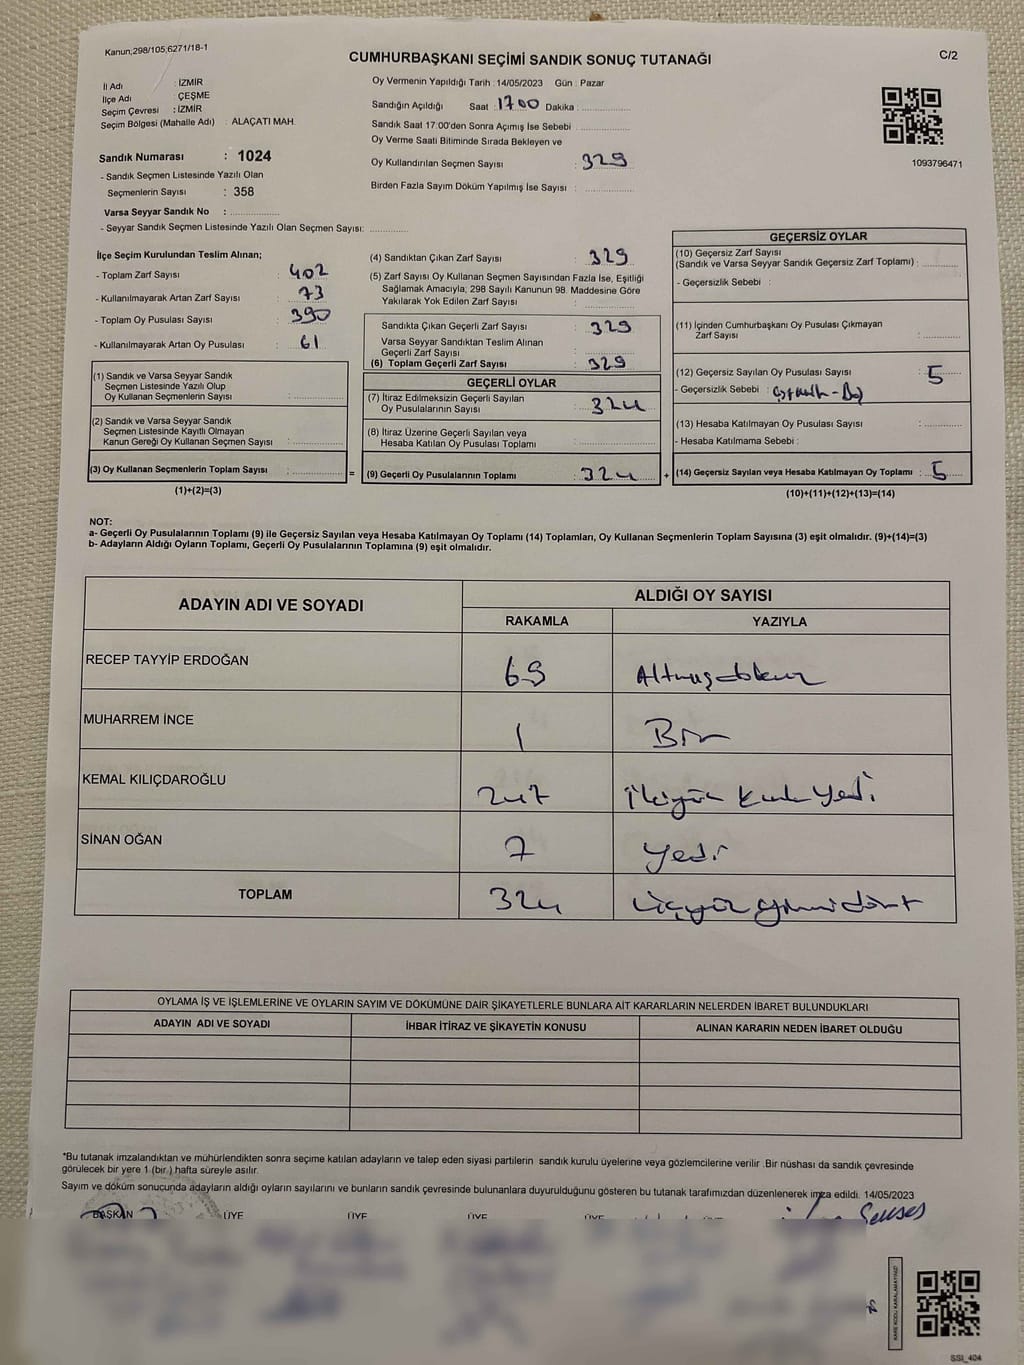 Kanun;298/105;6271/18-1
CUMHURBAŞKANI SEÇİMİ SANDIK SONUÇ TUTANAĞI
C/2
İl Adı : İZMİR
İlçe Adı : ÇEŞME
Seçim Çevresi : İZMİR
Seçim Bölgesi (Mahalle Adı) : ALAÇATI MAH.
Sandık Numarası : 1024
- Sandık Seçmen Listesinde Yazılı Olan
Seçmenlerin Sayısı : 358
Varsa Seyyar Sandık No : ................
- Seyyar Sandık Seçmen Listesinde Yazılı Olan Seçmen Sayısı: ............
Oy Vermenin Yapıldığı Tarih : 14/05/2023 Gün : Pazar
Sandığın Açıldığı Saat : 1700 Dakika : ................
Sandık Saat 17:00'den Sonra Açımış İse Sebebi : ................
Oy Verme Saati Bitiminde Sırada Bekleyen ve
Oy Kullandırılan Seçmen Sayısı : 329
Birden Fazla Sayım Döküm Yapılmış İse Sayısı : ................
1093796471
İlçe Seçim Kurulundan Teslim Alınan;
- Toplam Zarf Sayısı : 402
- Kullanılmayarak Artan Zarf Sayısı : 73
- Toplam Oy Pusulası Sayısı : 390
- Kullanılmayarak Artan Oy Pusulası : 61
(1) Sandık ve Varsa Seyyar Sandık
Seçmen Listesinde Yazılı Olup
Oy Kullanan Seçmenlerin Sayısı : ................
(2) Sandık ve Varsa Seyyar Sandık
Seçmen Listesinde Kayıtlı Olmayan
Kanun Gereği Oy Kullanan Seçmen Sayısı : ................
(3) Oy Kullanan Seçmenlerin Toplam Sayısı : ................
(1)+(2)=(3)
=
(4) Sandıktan Çıkan Zarf Sayısı : 329
(5) Zarf Sayısı Oy Kullanan Seçmen Sayısından Fazla İse, Eşitliği
Sağlamak Amacıyla; 298 Sayılı Kanunun 98. Maddesine Göre
Yakılarak Yok Edilen Zarf Sayısı : ................
Sandıkta Çıkan Geçerli Zarf Sayısı : 329
Varsa Seyyar Sandıktan Teslim Alınan
Geçerli Zarf Sayısı : ................
(6) Toplam Geçerli Zarf Sayısı : 329
GEÇERLİ OYLAR
(7) İtiraz Edilmeksizin Geçerli Sayılan
Oy Pusulalarının Sayısı : 324
(8) İtiraz Üzerine Geçerli Sayılan veya
Hesaba Katılan Oy Pusulası Toplamı : ................
(9) Geçerli Oy Pusulalarının Toplamı : 324
+
GEÇERSİZ OYLAR
(10) Geçersiz Zarf Sayısı
(Sandık ve Varsa Seyyar Sandık Geçersiz Zarf Toplamı) : ................
- Geçersizlik Sebebi :
(11) İçinden Cumhurbaşkanı Oy Pusulası Çıkmayan
Zarf Sayısı : ................
(12) Geçersiz Sayılan Oy Pusulası Sayısı : 5
- Geçersizlik Sebebi :
(13) Hesaba Katılmayan Oy Pusulası Sayısı : ................
- Hesaba Katılmama Sebebi :
(14) Geçersiz Sayılan veya Hesaba Katılmayan Oy Toplamı : 5
(10)+(11)+(12)+(13)=(14)
NOT:
a- Geçerli Oy Pusulalarının Toplamı (9) ile Geçersiz Sayılan veya Hesaba Katılmayan Oy Toplamı (14) Toplamları, Oy Kullanan Seçmenlerin Toplam Sayısına (3) eşit olmalıdır. (9)+(14)=(3)
b- Adayların Aldığı Oyların Toplamı, Geçerli Oy Pusulalarının Toplamına (9) eşit olmalıdır.
ADAYIN ADI VE SOYADI
ALDIĞI OY SAYISI
RAKAMLA YAZIYLA
RECEP TAYYİP ERDOĞAN 69 Altmışdokuz
MUHARREM İNCE 1 Bir
KEMAL KILIÇDAROĞLU 247 İkiyüz Kırk Yedi
SİNAN OĞAN 7 Yedi
TOPLAM 324 Üçyüz yirmi dört
OYLAMA İŞ VE İŞLEMLERİNE VE OYLARIN SAYIM VE DÖKÜMÜNE DAİR ŞİKAYETLERLE BUNLARA AİT KARARLARIN NELERDEN İBARET BULUNDUKLARI
ADAYIN ADI VE SOYADI İHBAR İTİRAZ VE ŞİKAYETİN KONUSU ALINAN KARARIN NEDEN İBARET OLDUĞU
*Bu tutanak imzalandıktan ve mühürlendikten sonra seçime katılan adayların ve talep eden siyasi partilerin sandık kurulu üyelerine veya gözlemcilerine verilir. Bir nüshası da sandık çevresinde
görülecek bir yere 1 (bir ) hafta süreyle asılır.
Sayım ve döküm sonucunda adayların aldığı oyların sayılarını ve bunların sandık çevresinde bulunanlara duyurulduğunu gösteren bu tutanak tarafımızdan düzenlenerek imza edildi. 14/05/2023
BAŞKAN ÜYE ÜYE ÜYE ÜYE ÜYE
KARE KODU KARALAMAYINIZ!
SSI_404